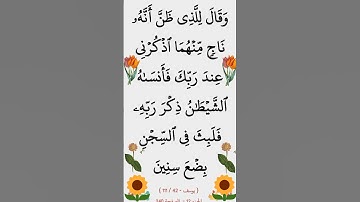 وَقَالَ لِلَّذِى ظَنَّ أَنَّهُۥ
نَاجٍ مِّنْهُمَا ٱذْكُرْنِى
عِندَ رَبِّكَ فَأَنسَىٰهُ
ٱلشَّيْطَٰنُ ذِكْرَ رَبِّهِۦ
فَلَبِثَ فِى ٱلسِّجْنِ
بِضْعَ سِنِينَ